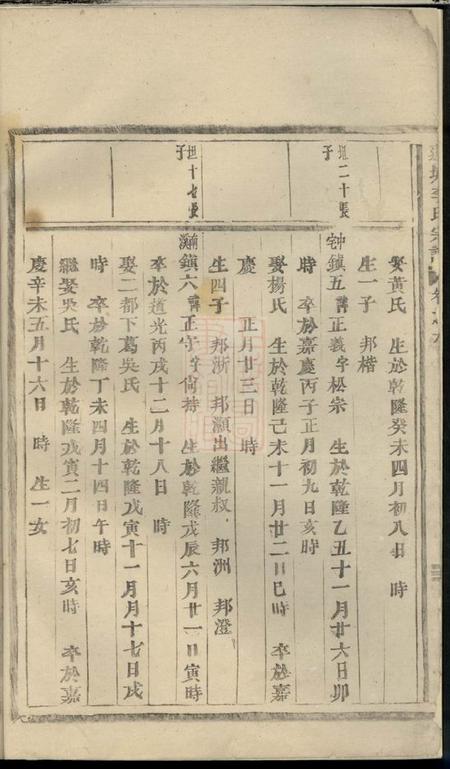 李氏宗譜
娶黃氏 生於乾隆癸未四月初八日 時
生一子 邦楷
坦二十張子
宅鎮五 諱正義字松宗 生於乾隆乙丑十一月廿六日卯
時 卒於嘉慶丙子正月初九日亥時
娶楊氏 生於乾隆己未十一月廿二日巳時 卒於嘉
慶 正月廿三日 時
生四子 邦浙 邦灝出繼親叔 邦洲 邦澄
坦十七張子
鎮六 諱正守字尚持 生於乾隆戊辰六月廿一日寅時
卒於道光丙戌十二月十八日 時
娶二都下葛吳氏 生於乾隆戊寅十一月十七日戌
時 卒於乾隆丁未四月十四日午時
繼娶吳氏 生於乾隆戊寅二月初七日亥時 卒於嘉
慶辛未五月十六日 時 生一女